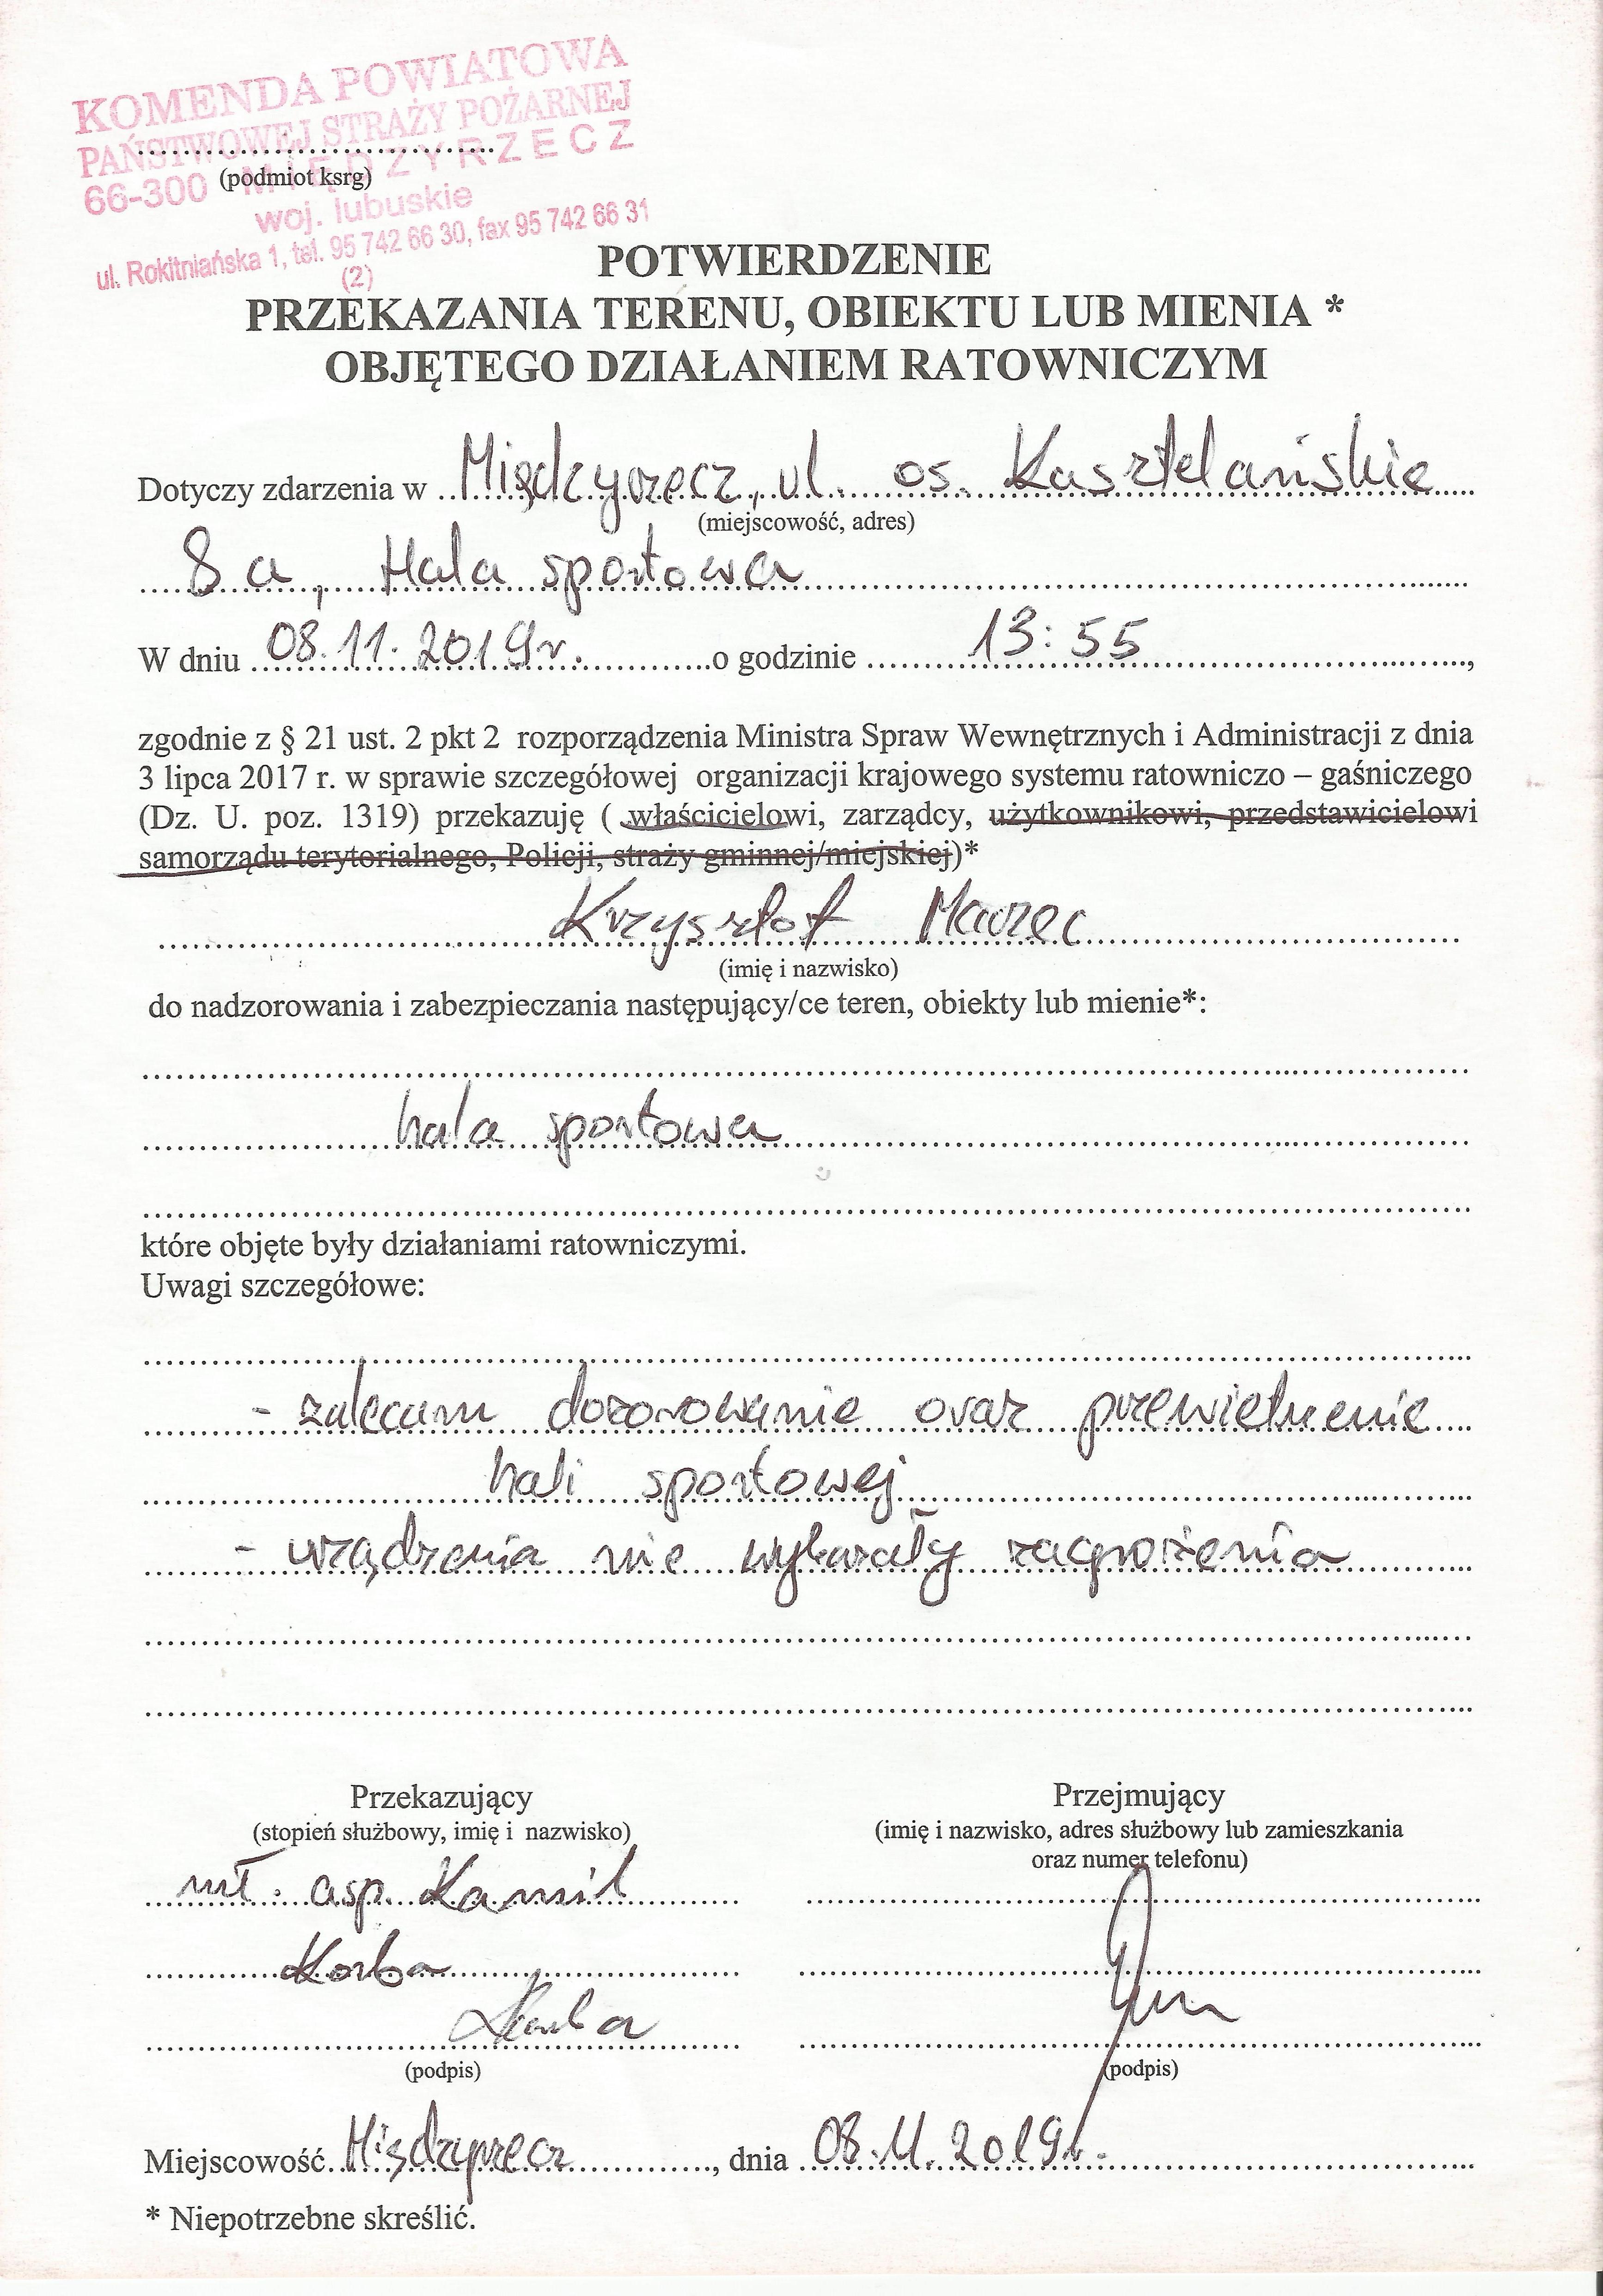 KOMENDA POWIATOWA
PAŃSTWOWEJ STRAŻY POŻARNEJ
66-300 MIĘDZYRZECZ
(podmiot ksrg)
woj. lubuskie
ul. Rokitniańska 1, tel. 95 742 66 30, fax 95 742 66 31
(2)
POTWIERDZENIE
PRZEKAZANIA TERENU, OBIEKTU LUB MIENIA *
OBJĘTEGO DZIAŁANIEM RATOWNICZYM
Dotyczy zdarzenia w Międzyrzecz, ul. os. Kasztelańskie
(miejscowość, adres)
8a, Hala sportowa
W dniu 08.11.2019r. o godzinie 13:55,
zgodnie z § 21 ust. 2 pkt 2 rozporządzenia Ministra Spraw Wewnętrznych i Administracji z dnia
3 lipca 2017 r. w sprawie szczegółowej organizacji krajowego systemu ratowniczo – gaśniczego
(Dz. U. poz. 1319) przekazuję ( właścicielowi, zarządcy, użytkownikowi, przedstawicielowi
samorządu terytorialnego, Policji, straży gminnej/miejskiej)*
Krzysztof Marzec
(imię i nazwisko)
do nadzorowania i zabezpieczania następujący/ce teren, obiekty lub mienie*:
hala sportowa
które objęte były działaniami ratowniczymi.
Uwagi szczegółowe:
- zalecam dozorowanie oraz przewietrzenie
hali sportowej
- urządzenia nie wykazały zagrożenia
Przekazujący Przejmujący
(stopień służbowy, imię i nazwisko) (imię i nazwisko, adres służbowy lub zamieszkania
oraz numer telefonu)
mł. asp. Kamil
Korba
Korba
(podpis) (podpis)
Miejscowość Międzyrzecz, dnia 08.11.2019r.
* Niepotrzebne skreślić.